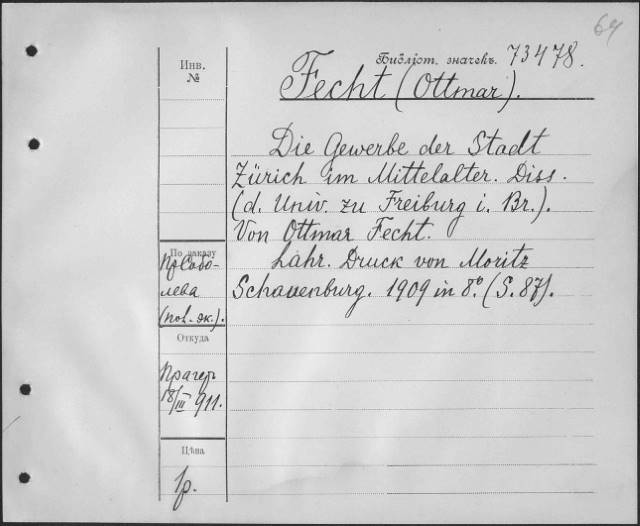 64
Библіот. значекъ. 73478.
Инв.
№
Fecht (Ottmar).
Die Gewerbe der Stadt
Zürich im Mittelalter. Diss.
(d. Univ. zu Freiburg i. Br.).
Von Ottmar Fecht.
Lahr. Druck von Moritz
Schauenburg. 1909 in 8º. (S. 87).
По заказу
Пр. Собо-
лева
Откуда
Прагер
18/III 911.
Цѣна
1р.